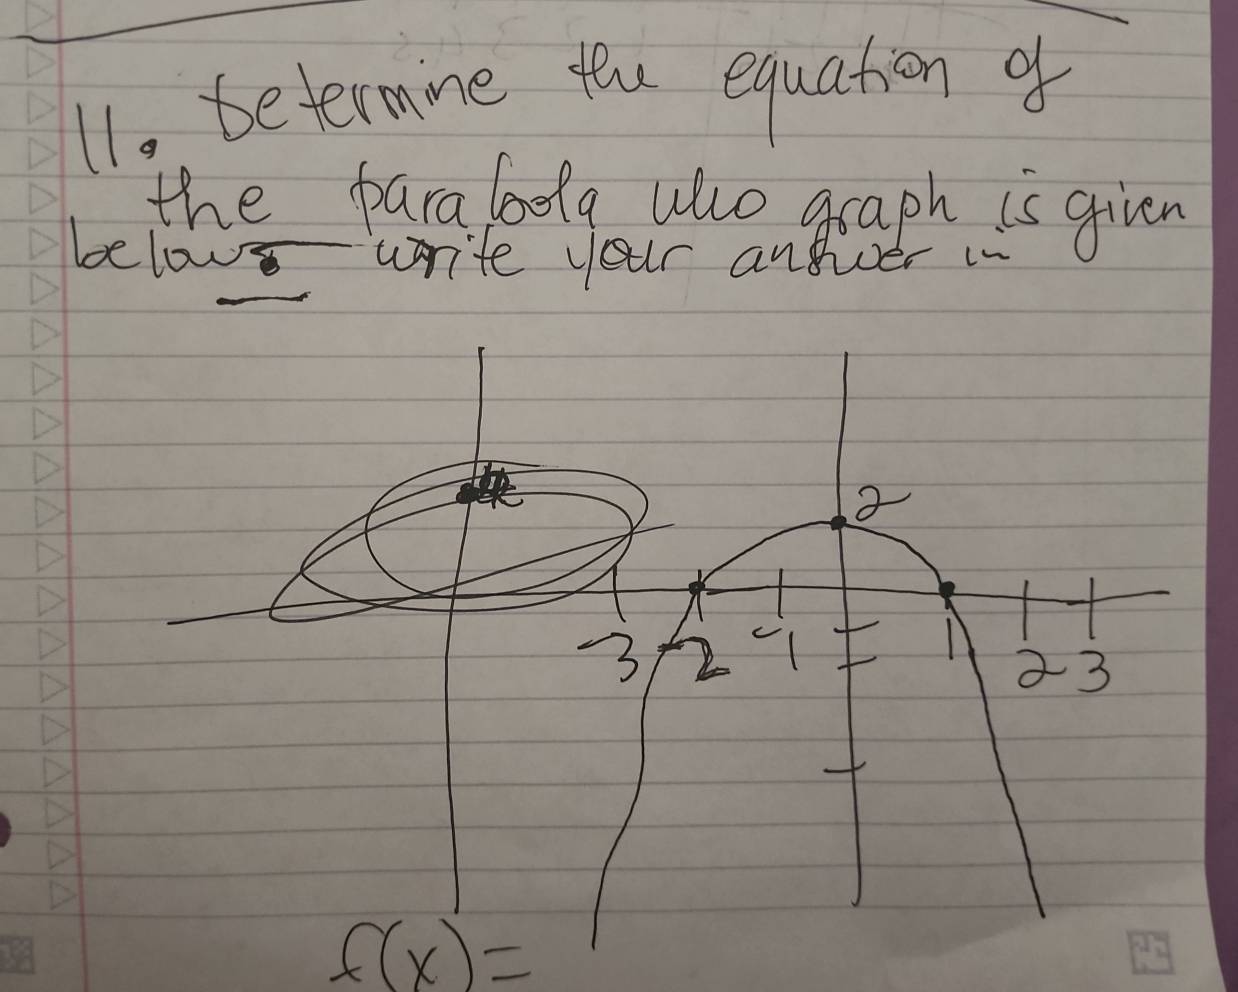 11. Determine the equation of
the parabola who graph is given
below. write your answer in
2
-3 -2 -1 1 2 3
f(x)=